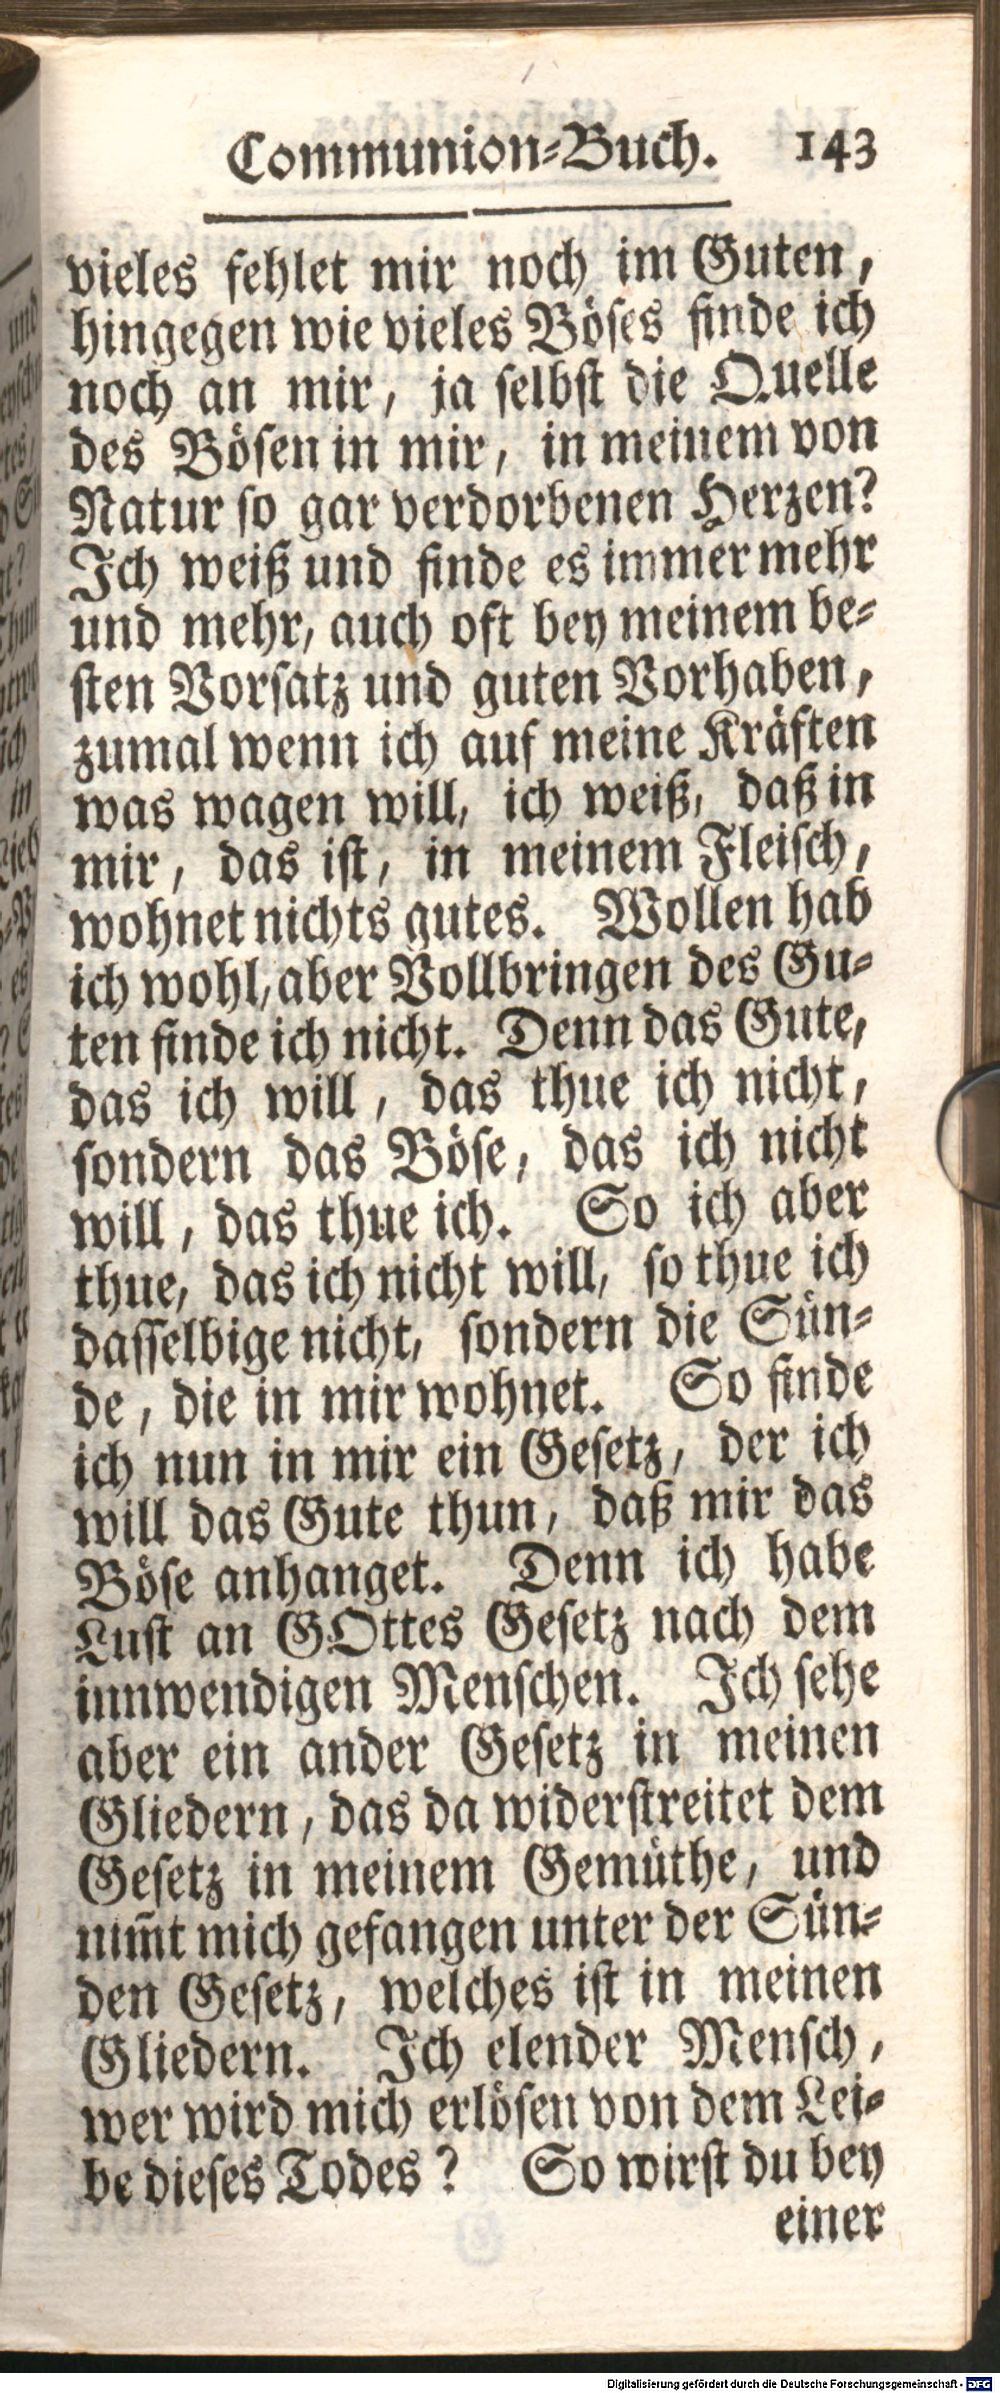 Communion-Buch. 143
vieles fehlet mir noch im Guten,
hingegen wie vieles Böses finde ich
noch an mir, ja selbst die Quelle
des Bösen in mir, in meinem von
Natur so gar verdorbenen Herzen?
Ich weiß und finde es immer mehr
und mehr, auch oft bey meinem be-
sten Vorsatz und guten Vorhaben,
zumal wenn ich auf meine Kräften
was wagen will, ich weiß, daß in
mir, das ist, in meinem Fleisch,
wohnet nichts gutes. Wollen hab
ich wohl, aber Vollbringen des Gu-
ten finde ich nicht. Denn das Gute,
das ich will, das thue ich nicht,
sondern das Böse, das ich nicht
will, das thue ich. So ich aber
thue, das ich nicht will, so thue ich
dasselbige nicht, sondern die Sün-
de, die in mir wohnet. So finde
ich nun in mir ein Gesetz, der ich
will das Gute thun, daß mir das
Böse anhanget. Denn ich habe
Lust an GOttes Gesetz nach dem
innwendigen Menschen. Ich sehe
aber ein ander Gesetz in meinen
Gliedern, das da widerstreitet dem
Gesetz in meinem Gemüthe, und
nim̃t mich gefangen unter der Sün-
den Gesetz, welches ist in meinen
Gliedern. Ich elender Mensch,
wer wird mich erlösen von dem Lei-
be dieses Todes? So wirst du bey
einer
Digitalisierung gefördert durch die Deutsche Forschungsgemeinschaft - DFG